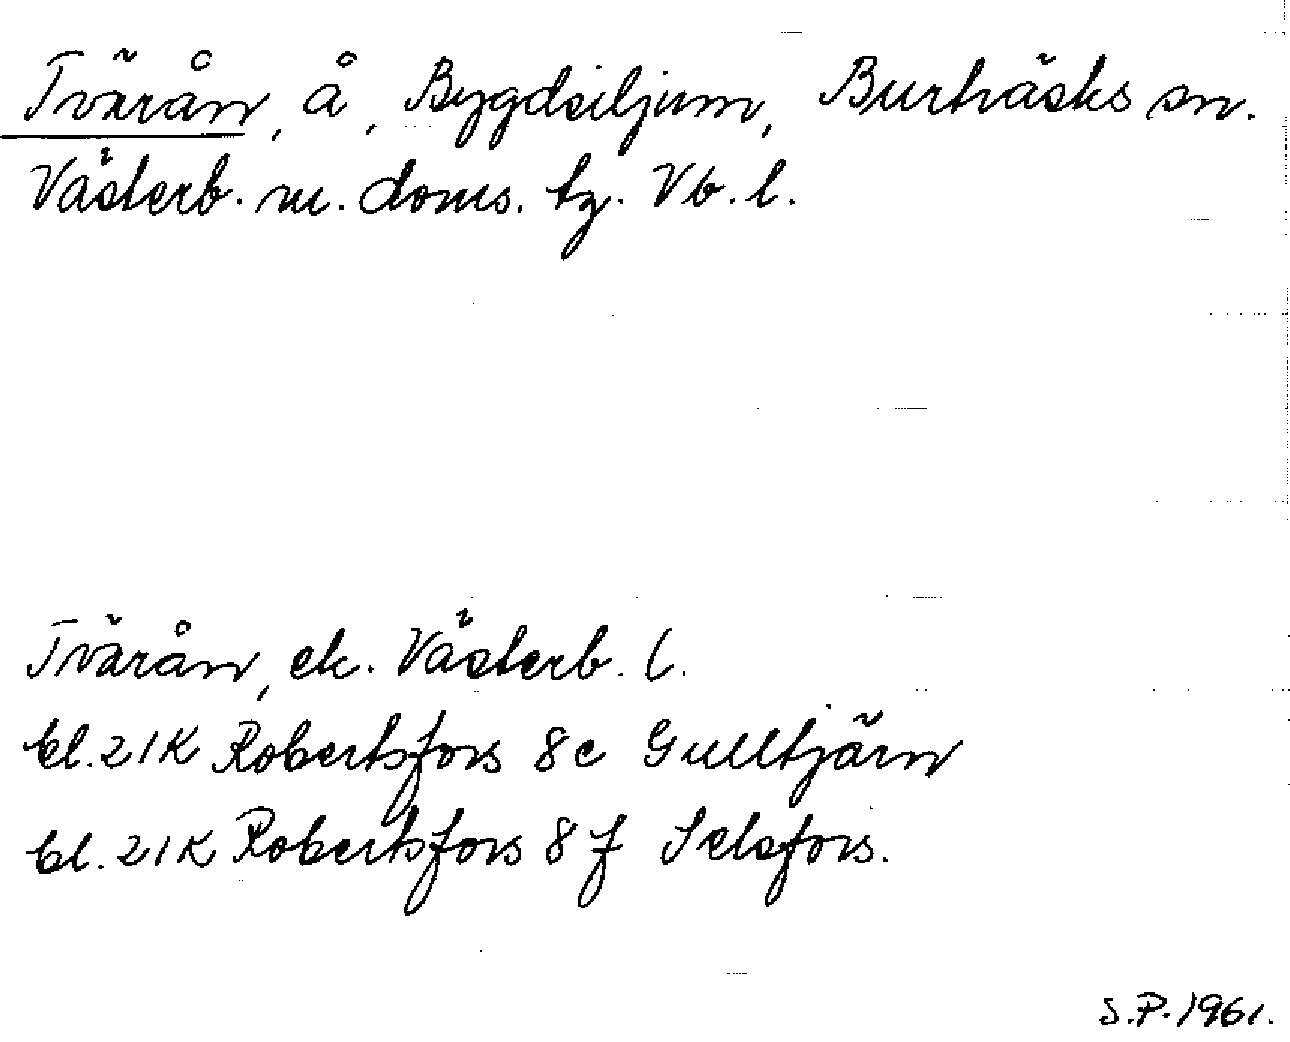 Tvärån, å, Bygdsiljum, Burträsks sn.
Västerb. m. doms. tg. Vb. l.
Tvärån, ek. Västerb. l.
bl. 21K Robertsfors 8e Gulltjärn
bl. 21K Robertsfors 8f Selsfors.
S.P. 1961.